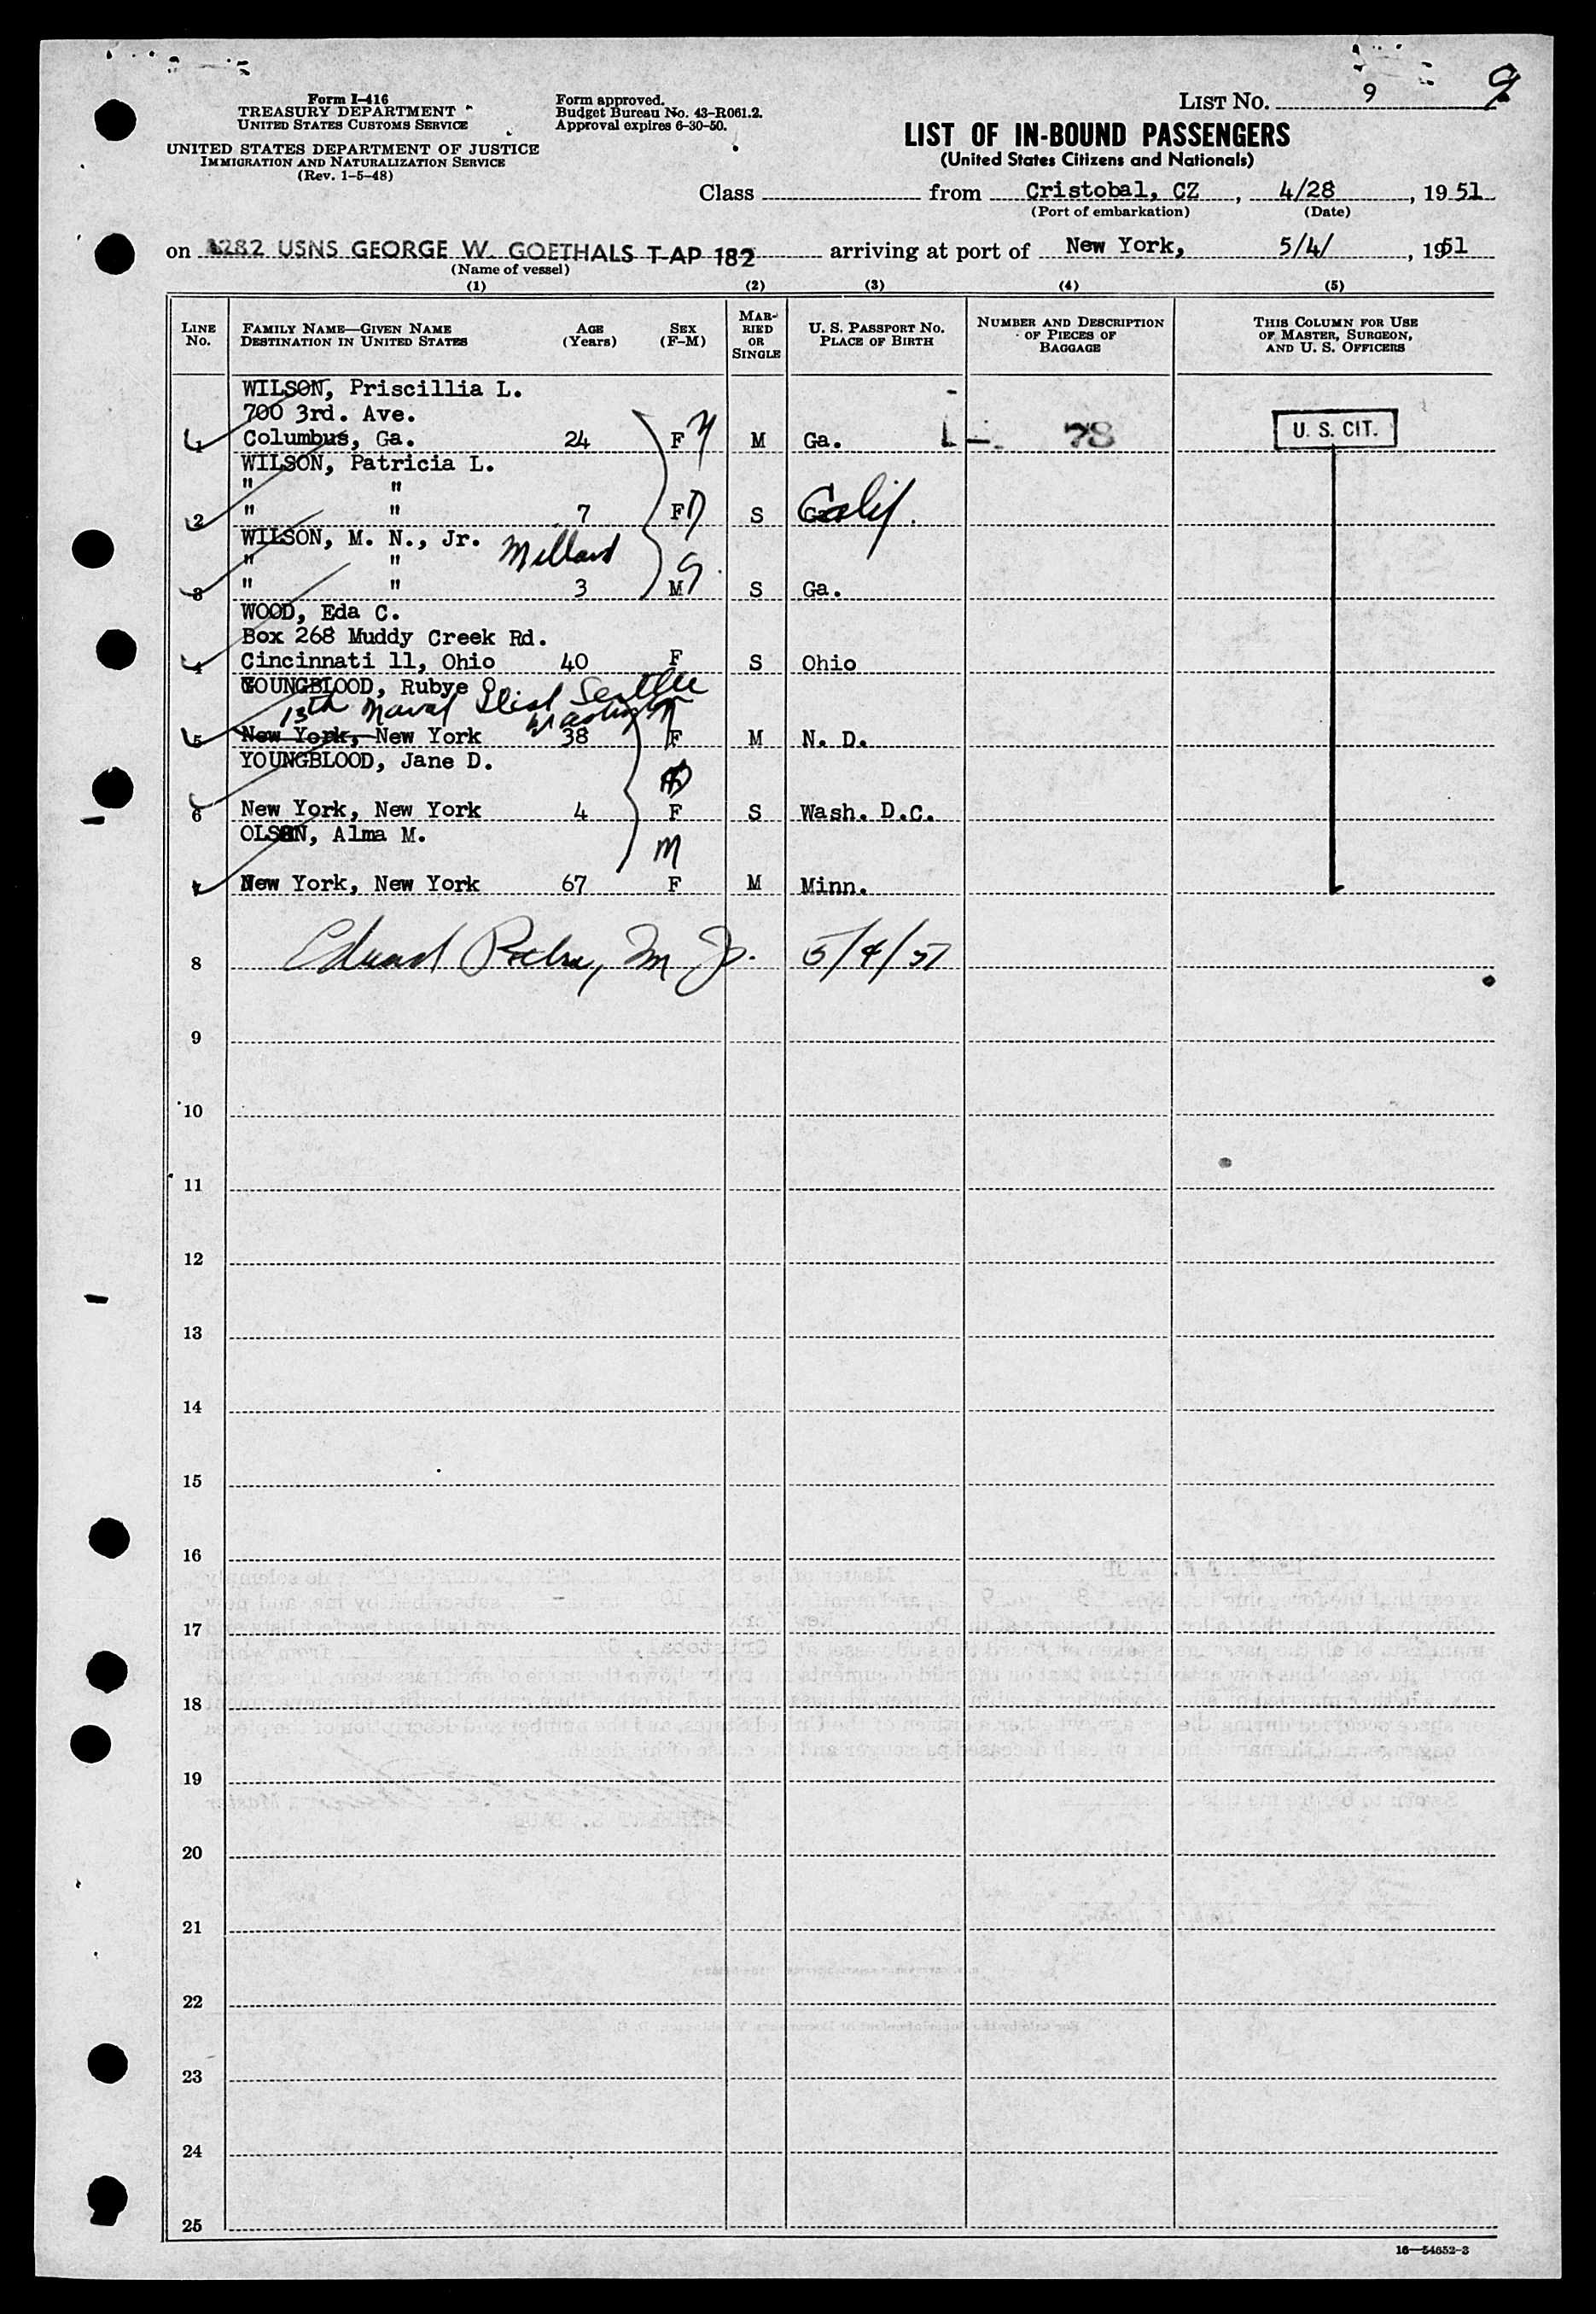 LIST NO. 9 9
Form I-416
TREASURY DEPARTMENT
UNITED STATES CUSTOMS SERVICE
UNITED STATES DEPARTMENT OF JUSTICE
IMMIGRATION AND NATURALIZATION SERVICE
(Rev. 1-5-48)
Form approved.
Budget Bureau No. 43-R061.2.
Approval expires 6-30-50.
LIST OF IN-BOUND PASSENGERS
(United States Citizens and Nationals)
Class from Cristobal, CZ, 4/28, 1951
(Port of embarkation) (Date)
on 282 USNS GEORGE W. GOETHALS T-AP 182 arriving at port of New York, 5/4/, 1951
(Name of vessel)
(1) (2) (3) (4) (5)
LINE No. FAMILY NAME—GIVEN NAME DESTINATION IN UNITED STATES AGE (Years) SEX (F-M) MARRIED OR SINGLE U. S. PASSPORT NO. PLACE OF BIRTH NUMBER AND DESCRIPTION OF PIECES OF BAGGAGE THIS COLUMN FOR USE OF MASTER, SURGEON, AND U. S. OFFICERS
WILSON, Priscillia L.
700 3rd. Ave.
1 Columbus, Ga. 24 F M Ga. 78 U. S. CIT.
WILSON, Patricia L.
" "
2 " " 7 F S Calif.
WILSON, M. N., Jr. Millard
" "
3 " " 3 M S Ga.
WOOD, Eda C.
Box 268 Muddy Creek Rd.
4 Cincinnati 11, Ohio 40 F S Ohio
YOUNGBLOOD, Rubye O
13th Naval Dist Seattle
Washington
5 New York, New York 38 F M N. D.
YOUNGBLOOD, Jane D.
6 New York, New York 4 F S Wash. D.C.
OLSEN, Alma M. M
7 New York, New York 67 F M Minn.
8 Edward 5/4/51
9
10
11
12
13
14
15
16
17
18
19
20
21
22
23
24
25
16—54652-3